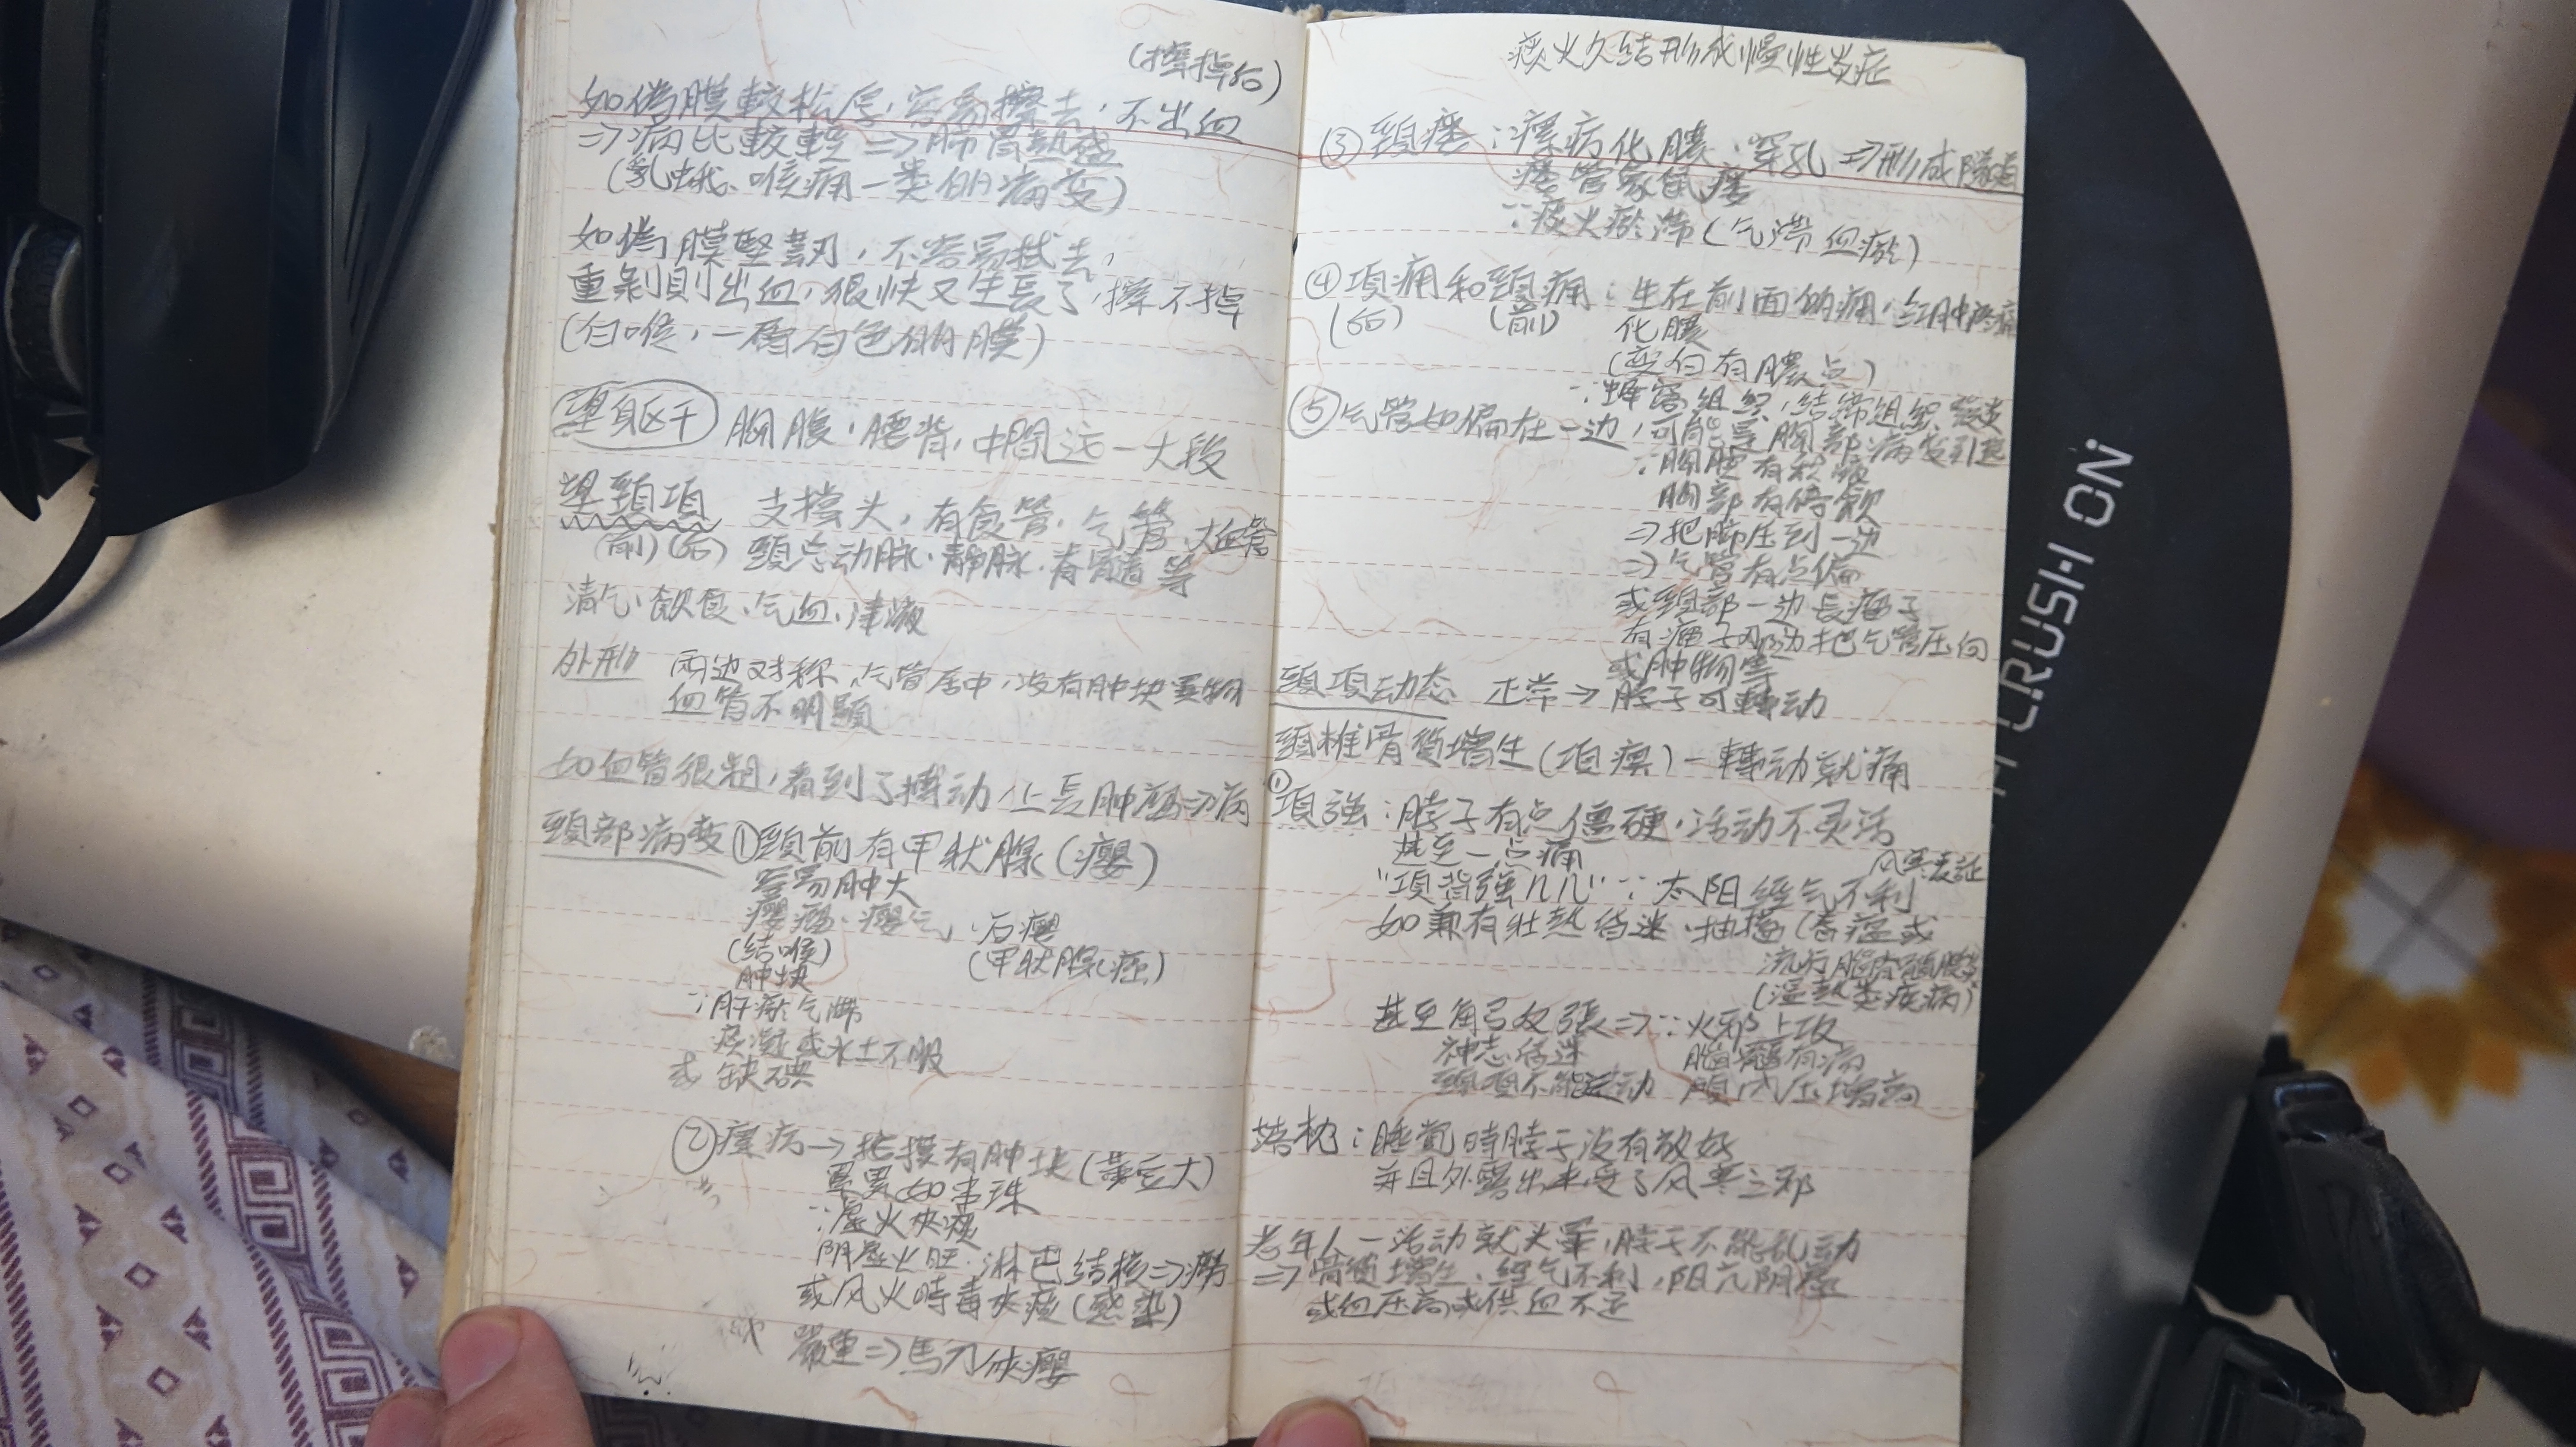 (擦掉后)
如偽膜較松厚,容易擦去,不出血
⇒病比較輕⇒肺胃熱盛
(乳蛾、喉痛一类的病变)
如偽膜堅韌,不容易拭去,
重剝則出血,很快又生長了,擦不掉
(白喉,一層白色的膜)
望身区干 胸腹,腰背,中間这一大段
望頸項 支撑头,有食管、气管、大血管
(前)(后) 頸总动脉、静脉、脊髓等
清气、飲食、气血、津液
外形 两边对称,气管居中,没有肿块異物
血管不明顯
如血管很粗,看到了搏动,上長肿瘤⇒病
頸部病变 ①頸前有甲状腺(癭)
容易肿大
癭瘤、癭气、石癭
(結喉) (甲状腺癌)
肿块
∵肝鬱气滞
痰凝或水土不服
或缺碘
②瘰病→拒摸有肿块(黄豆大)
累累如串珠
∵虛火夾痰
阴虛火旺、淋巴結核⇒癆
或风火時毒夾痰(感染)
嚴重⇒馬刀俠癭
痰火久結形成慢性炎症
③頸瘻:瘰病化膿、穿孔⇒形成隧道
瘻管象鼠瘻
∵痰火瘀滞(气滞血瘀)
④項痈和頸痈:生在前面的痈,红肿疼痛
(后) (前) 化膿
(变白有膿点)
∵蜂窩組织,結締組织發炎
⑤气管如偏在一边,可能是胸部病变引起
∵胸腔有积液
胸部有停飲
⇒把肺压到一边
⇒气管有点偏
或頸部一边長瘤子
有瘤子那边把气管压向
或肿物等
頸項动态 正常⇒脖子可轉动
頸椎骨質增生(項痹)一轉动就痛
①項強:脖子有点僵硬,活动不灵活
甚至一点痛 风寒表証
"項背強几几"∵太阳經气不利
如兼有壮熱昏迷、抽搐(春瘟或
流行脑脊髓膜炎
(溫熱类疾病)
甚至角弓反張⇒∵火邪上攻
神志昏迷 脑髓有病
頸項不能运动 顱内压增高
落枕:睡覚時脖子没有放好
并且外露出来受了风寒之邪
老年人一活动就头暈,脖子不能乱动
⇒骨質增生、經气不利,阳亢阴虛
或血压高或供血不足
CRUSH ON